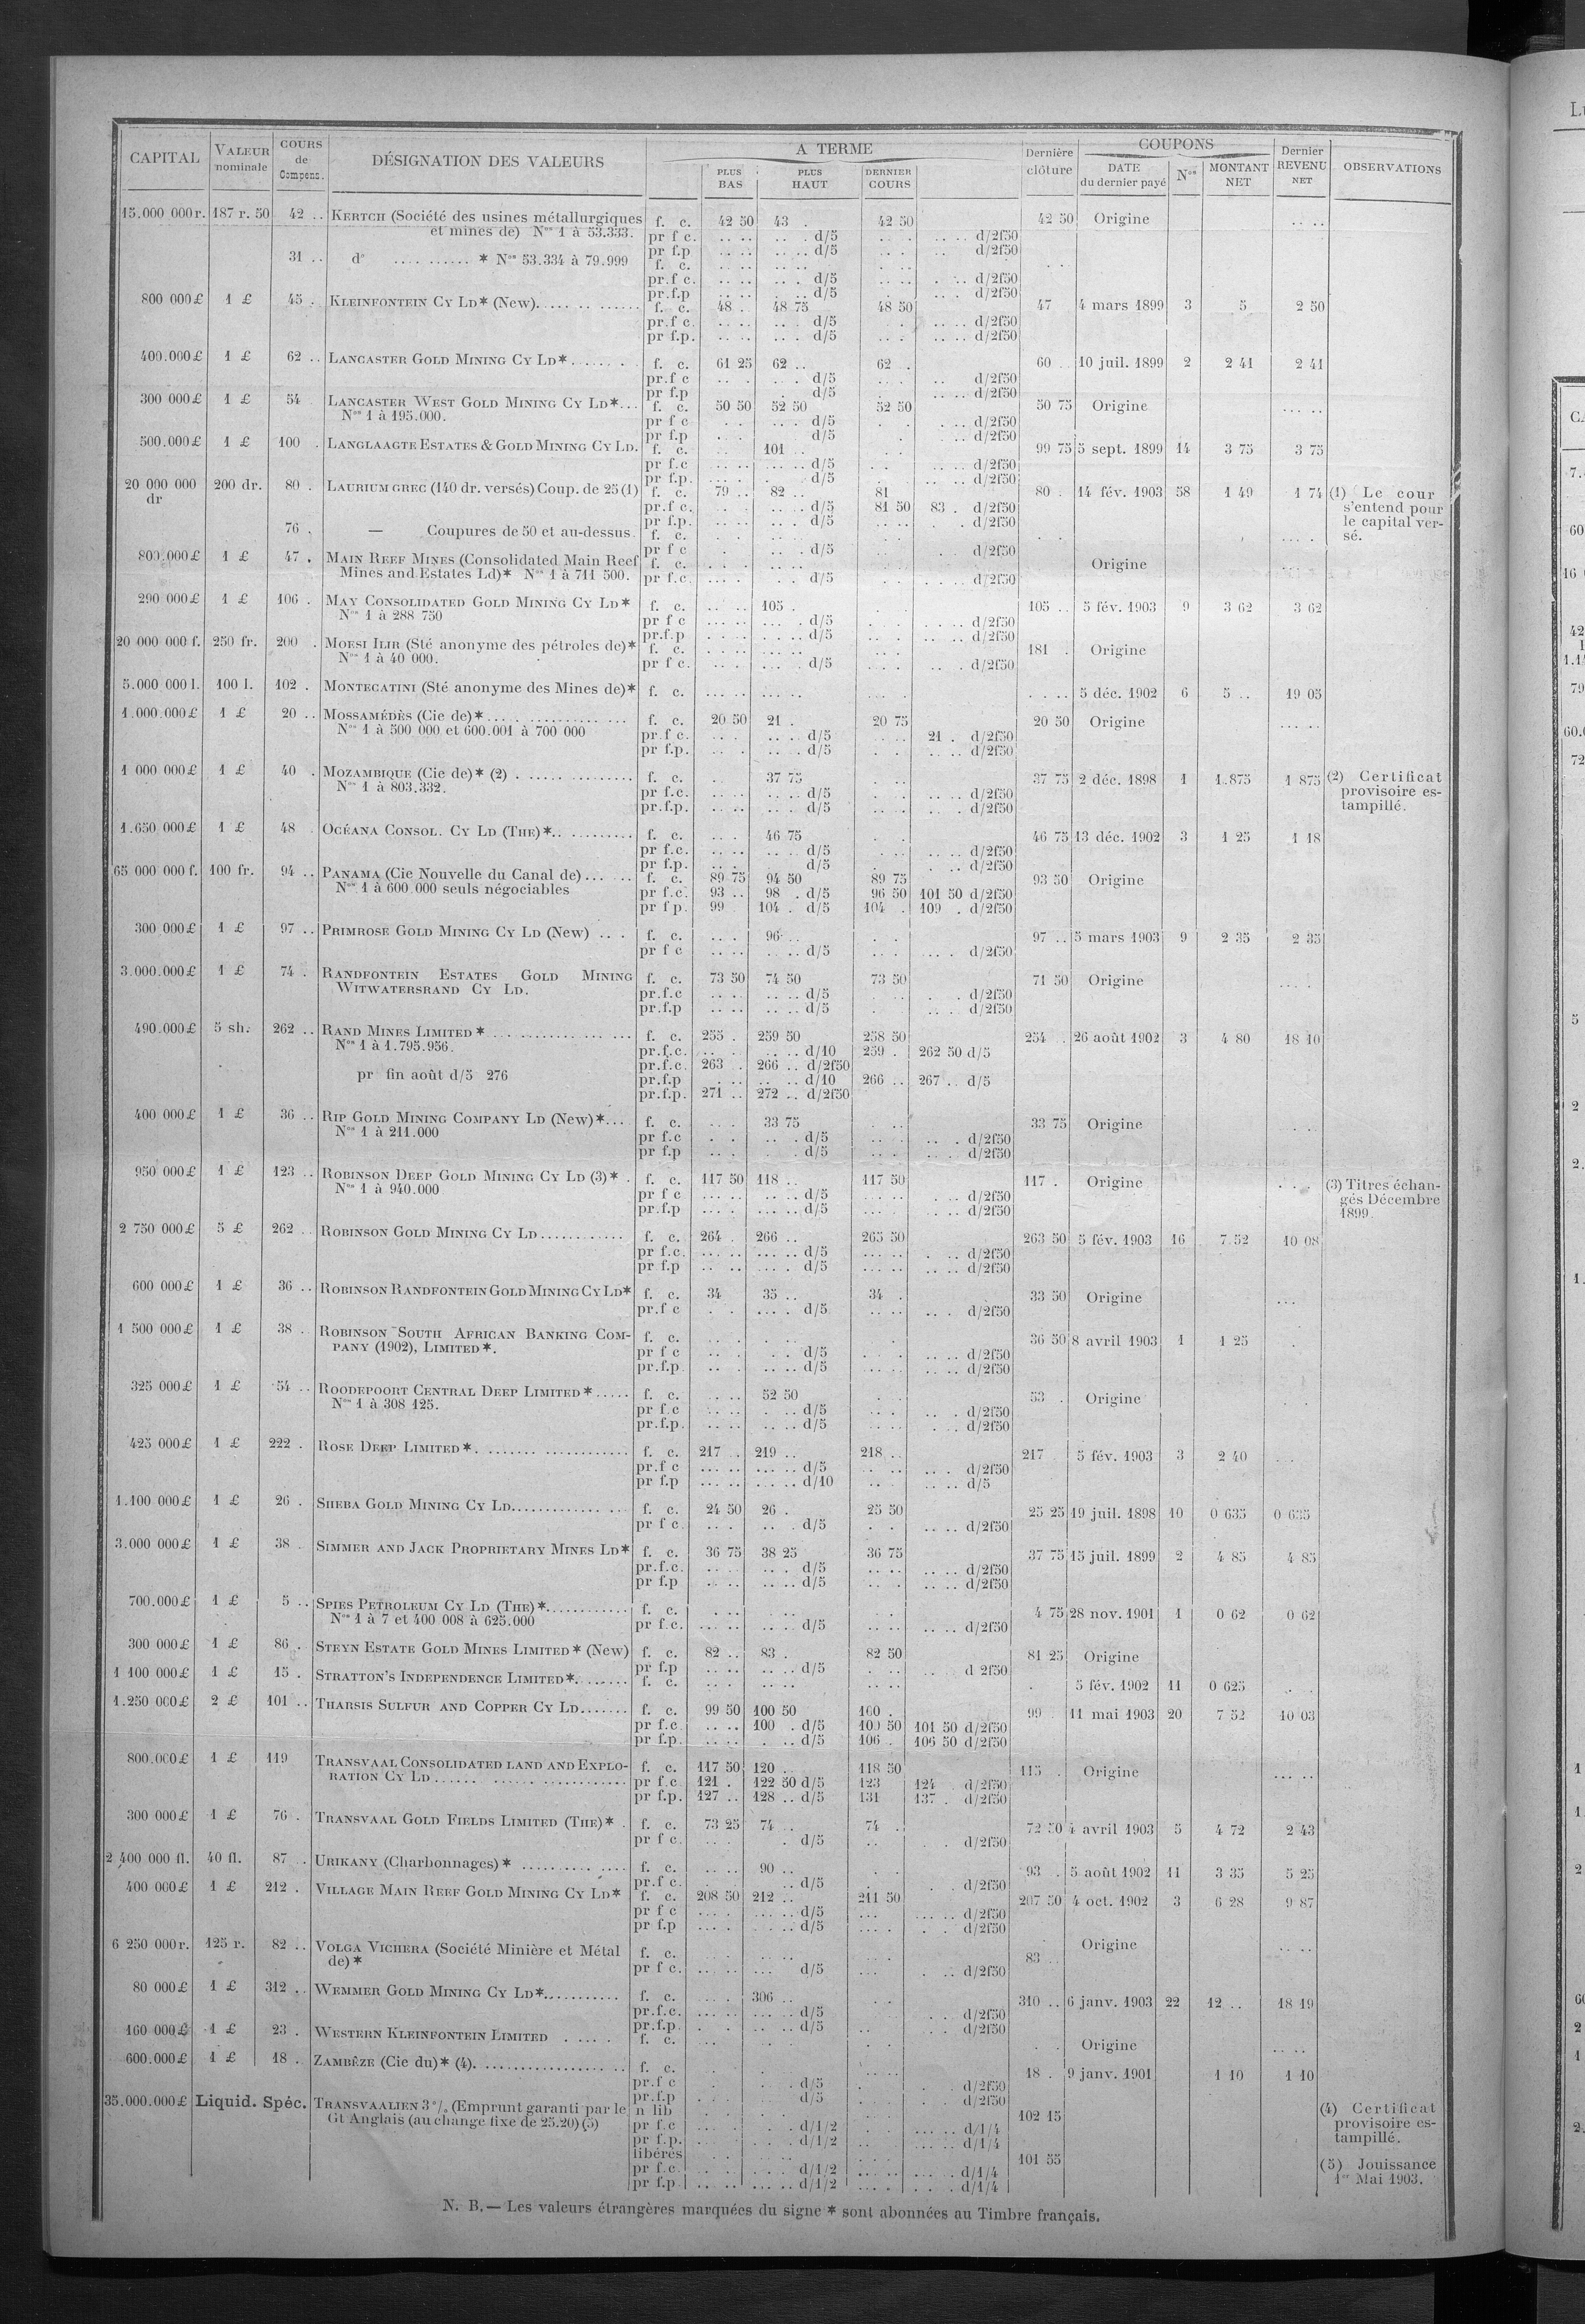 CAPITAL VALEUR nominale COURS de Compens. DÉSIGNATION DES VALEURS A TERME PLUS BAS PLUS HAUT DERNIER COURS Dernière clôture COUPONS DATE du dernier payé Nos MONTANT NET Dernier REVENU NET OBSERVATIONS
15.000 000r. 187 r. 50 42 .. KERTCH (Société des usines métallurgiques f. c. 42 50 43 . 42 50 42 50 Origine
et mines de) Nos 1 à 53.333. pr f c. d/5 d/2f50
pr f.p d/5 d/2f50
31 .. do .......... * Nos 53.334 à 79.999 f. c.
pr.f c. d/5 d/2f50
pr.f.p d/5 d/2f50
800 000£ 1 £ 45 . KLEINFONTEIN CY LD* (New) f. c. 48 . 48 75 48 50 47 4 mars 1899 3 5 2 50
pr.f c. d/5 d/2f50
pr f.p. d/5 d/2f50
400.000£ 1 £ 62 .. LANCASTER GOLD MINING CY LD* f. c. 61 25 62 .. 62 . 60 .. 10 juil. 1899 2 2 41 2 41
pr.f c d/5 d/2f50
pr f.p d/5 d/2f50
300 000£ 1 £ 54 LANCASTER WEST GOLD MINING CY LD* f. c. 50 50 52 50 52 50 50 75 Origine
Nos 1 à 195.000. pr f c d/5 d/2f50
pr f.p d/5 d/2f50
500.000£ 1 £ 100 . LANGLAAGTE ESTATES & GOLD MINING CY LD. f. c. 101 99 75 5 sept. 1899 14 3 75 3 75
pr f.c d/5 d/2f50
pr f.p. d/5 d/2f50
20 000 000 dr 200 dr. 80 . LAURIUM GREC (140 dr. versés) Coup. de 25 (1) f. c. 79 .. 82 .. 81 80 . 14 fév. 1903 58 1 49 1 74 (1) Le cour
pr.f c. d/5 81 50 83 . d/2f50 s'entend pour
pr f.p. d/5 d/2f50 le capital ver-
76 . — Coupures de 50 et au-dessus. f. c. sé.
pr f c d/5 d/2f50
800.000£ 1 £ 47 . MAIN REEF MINES (Consolidated Main Reef f. c. Origine
Mines and Estates Ld)* Nos 1 à 711 500. pr f.c. d/5 d/2f50
290 000£ 1 £ 106 . MAY CONSOLIDATED GOLD MINING CY LD* f. c. 105 . 105 .. 5 fév. 1903 9 3 62 3 62
Nos 1 à 288 750 pr f c d/5 d/2f50
pr.f.p d/5 d/2f50
20 000 000 f. 250 fr. 200 . MOESI ILIR (Sté anonyme des pétroles de)* f. c. 181 . Origine
Nos 1 à 40 000. pr f c. d/5 d/2f50
5.000 000 l. 100 l. 102 . MONTECATINI (Sté anonyme des Mines de)* f. c. 5 déc. 1902 6 5 .. 19 05
1.000.000£ 1 £ 20 .. MOSSAMÉDÈS (Cie de)* f. c. 20 50 21 . 20 75 20 50 Origine
Nos 1 à 500 000 et 600.001 à 700 000 pr.f c. d/5 21 . d/2f50
pr f.p. d/5 d/2f50
1 000 000£ 1 £ 40 . MOZAMBIQUE (Cie de)* (2) f. c. 37 75 37 75 2 déc. 1898 1 1.875 1 875 (2) Certificat
Nos 1 à 803.332. pr f.c. d/5 d/2f50 provisoire es-
pr.f.p. d/5 d/2f50 tampillé.
1.650 000£ 1 £ 48 . OCÉANA CONSOL. CY LD (THE)* f. c. 46 75 46 75 13 déc. 1902 3 1 25 1 18
pr f.c. d/5 d/2f50
pr f.p. d/5 d/2f50
65 000 000 f. 100 fr. 94 .. PANAMA (Cie Nouvelle du Canal de) f. c. 89 75 94 50 89 75 93 50 Origine
Nos 1 à 600.000 seuls négociables pr f.c. 93 .. 98 . d/5 96 50 101 50 d/2f50
pr f p. 99 104 . d/5 104 . 109 . d/2f50
300 000£ 1 £ 97 .. PRIMROSE GOLD MINING CY LD (New) f. c. 96 97 .. 5 mars 1903 9 2 35 2 35
pr f c d/5 d/2f50
3.000.000£ 1 £ 74 . RANDFONTEIN ESTATES GOLD MINING f. c. 73 50 74 50 73 50 71 50 Origine
WITWATERSRAND CY LD. pr.f.c d/5 d/2f50
pr.f.p d/5 d/2f50
490.000£ 5 sh. 262 .. RAND MINES LIMITED * f. c. 255 . 259 50 258 50 254 . 26 août 1902 3 4 80 18 10
Nos 1 à 1.795.956. pr.f.c. d/10 259 . 262 50 d/5
pr.f.c. 263 . 266 .. d/2f50
pr fin août d/5 276 pr.f.p d/10 266 .. 267 .. d/5
pr.f.p. 271 .. 272 .. d/2f50
400 000£ 1 £ 36 .. RIP GOLD MINING COMPANY LD (New)* f. c. 33 75 33 75 Origine
Nos 1 à 211.000 pr f.c d/5 d/2f50
pr f.p d/5 d/2f50
950 000£ 1 £ 123 .. ROBINSON DEEP GOLD MINING CY LD (3)* f. c. 117 50 118 .. 117 50 117 . Origine (3) Titres échan-
Nos 1 à 940.000 pr f c d/5 d/2f50 gés Décembre
pr.f.p d/5 d/2f50 1899
2 750 000£ 5 £ 262 .. ROBINSON GOLD MINING CY LD f. c. 264 . 266 .. 265 50 263 50 5 fév. 1903 16 7.52 10 08
pr f.c. d/5 d/2f50
pr f.p d/5 d/2f50
600 000£ 1 £ 36 .. ROBINSON RANDFONTEIN GOLD MINING CY LD* f. c. 34 35 .. 34 . 33 50 Origine
pr.f c d/5 d/2f50
1 500 000£ 1 £ 38 . ROBINSON SOUTH AFRICAN BANKING COM- f. c. 36 50 8 avril 1903 1 1 25
PANY (1902), LIMITED*. pr f c d/5 d/2f50
pr.f.p. d/5 d/2f50
325 000£ 1 £ 54 .. ROODEPOORT CENTRAL DEEP LIMITED* f. c. 52 50 53 . Origine
Nos 1 à 308 125. pr f.c d/5 d/2f50
pr.f.p. d/5 d/2f50
425 000£ 1 £ 222 . ROSE DEEP LIMITED* f. c. 217 . 219 .. 218 .. 217 5 fév. 1903 3 2 40
pr.f c d/5 d/2f50
pr f.p d/10 d/5
1.100 000£ 1 £ 26 . SHEBA GOLD MINING CY LD f. c. 24 50 26 . 25 50 25 25 19 juil. 1898 10 0 635 0 635
pr f c. d/5 d/2f50
3.000 000£ 1 £ 38 . SIMMER AND JACK PROPRIETARY MINES LD* f. c. 36 75 38 25 36 75 37 75 15 juil. 1899 2 4 85 4 85
pr.f.c. d/5 d/2f50
pr f.p d/5 d/2f50
700.000£ 1 £ 5 .. SPIES PETROLEUM CY LD (THE)* f. c. 4 75 28 nov. 1901 1 0 62 0 62
Nos 1 à 7 et 400 008 à 625.000 pr f.c. d/5 d/2f50
300 000£ 1 £ 86 . STEYN ESTATE GOLD MINES LIMITED* (New) f. c. 82 .. 83 . 82 50 81 25 Origine
pr f.p d/5 d 2f50
1 100 000£ 1 £ 15 . STRATTON'S INDEPENDENCE LIMITED* f. c. 5 fév. 1902 11 0 625
1.250 000£ 2 £ 101 .. THARSIS SULFUR AND COPPER CY LD f. c. 99 50 100 50 100 . 99 . 11 mai 1903 20 7 52 10 03
pr f.c. 100 . d/5 100 50 101 50 d/2f50
pr f.p. d/5 106 . 106 50 d/2f50
800.000£ 1 £ 119 TRANSVAAL CONSOLIDATED LAND AND EXPLO- f. c. 117 50 120 .. 118 50 115 . Origine
RATION CY LD pr f.c 121 . 122 50 d/5 123 124 . d/2f50
pr f.p. 127 .. 128 .. d/5 131 137 . d/2f50
300 000£ 1 £ 76 . TRANSVAAL GOLD FIELDS LIMITED (THE)* f. c. 73 25 74 .. 74 . 72 50 4 avril 1903 5 4 72 2 43
pr f c. d/5 d/2f50
2,400 000 fl. 40 fl. 87 .. URIKANY (Charbonnages)* f. c. 90 .. 93 . 5 août 1902 11 3 35 5 25
pr.f c. d/5 d/2f50
400 000£ 1 £ 212 . VILLAGE MAIN REEF GOLD MINING CY LD* f. c. 208 50 212 .. 211 50 207 50 4 oct. 1902 3 6 28 9 87
pr f c d/5 d/2f50
pr f.p d/5 d/2f50
6 250 000r. 125 r. 82 .. VOLGA VICHERA (Société Minière et Métal f. c. 83 .. Origine
de)* pr f c. d/5 d/2f50
80 000£ 1 £ 312 .. WEMMER GOLD MINING CY LD* f. c. 306 .. 310 .. 6 janv. 1903 22 12 .. 18 19
pr.f.c. d/5 d/2f50
pr.f.p. d/5 d/2f50
160 000£ 1 £ 23 . WESTERN KLEINFONTEIN LIMITED f. c. Origine
600.000£ 1 £ 18 . ZAMBÈZE (Cie du)* (4) f. c. 18 . 9 janv. 1901 1 10 1 10
pr.f c d/5 d/2f50
pr.f.p d/5 d/2f50
35.000.000£ Liquid. Spéc. TRANSVAALIEN 3 % (Emprunt garanti par le n lib 102 15 (4) Certificat
Gt Anglais (au change fixe de 25.20) (5) pr f.c d/1/2 d/1/4 provisoire es-
pr f.p. d/1/2 d/1/4 tampillé.
libérés 101 55
pr f.c. d/1/2 d/1/4 (5) Jouissance
pr f.p d/1/2 d/1/4 1er Mai 1903.
N. B. — Les valeurs étrangères marquées du signe * sont abonnées au Timbre français.